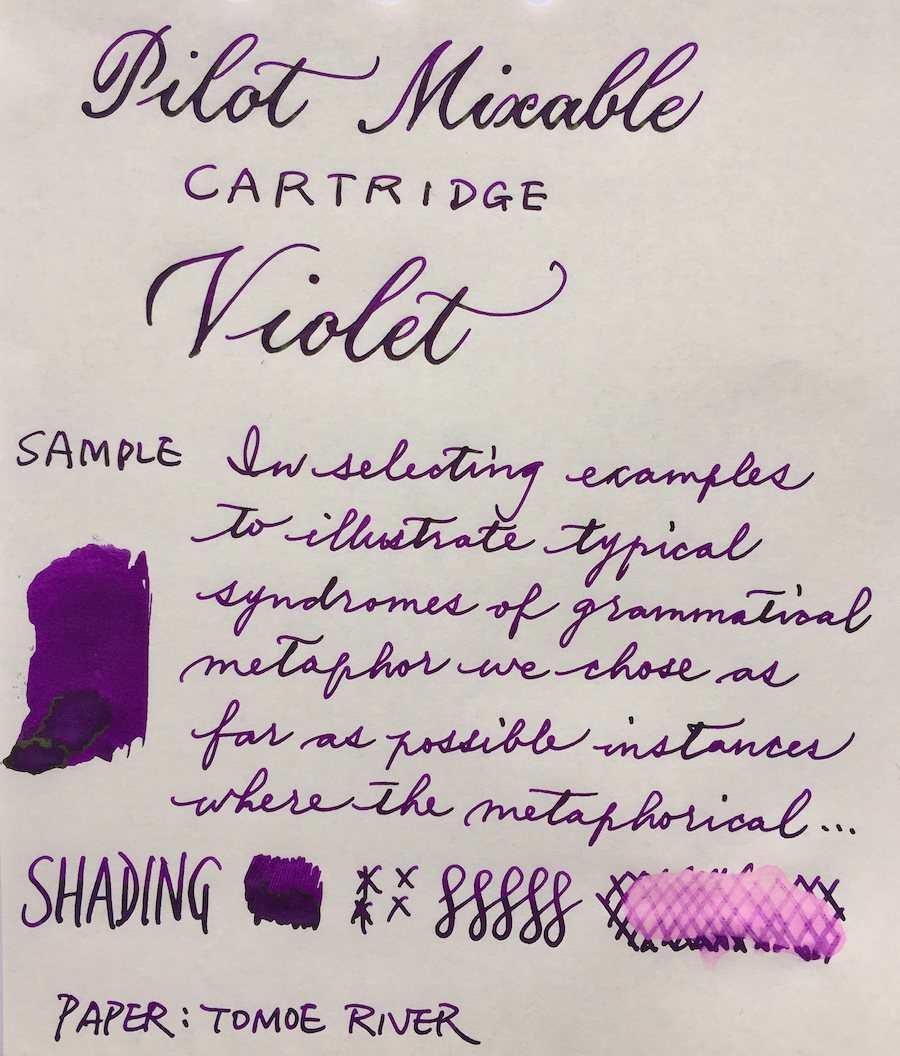 Pilot Mixable
CARTRIDGE
Violet
SAMPLE
In selecting examples
to illustrate typical
syndromes of grammatical
metaphor we chose as
far as possible instances
where the metaphorical...
SHADING
PAPER: TOMOE RIVER